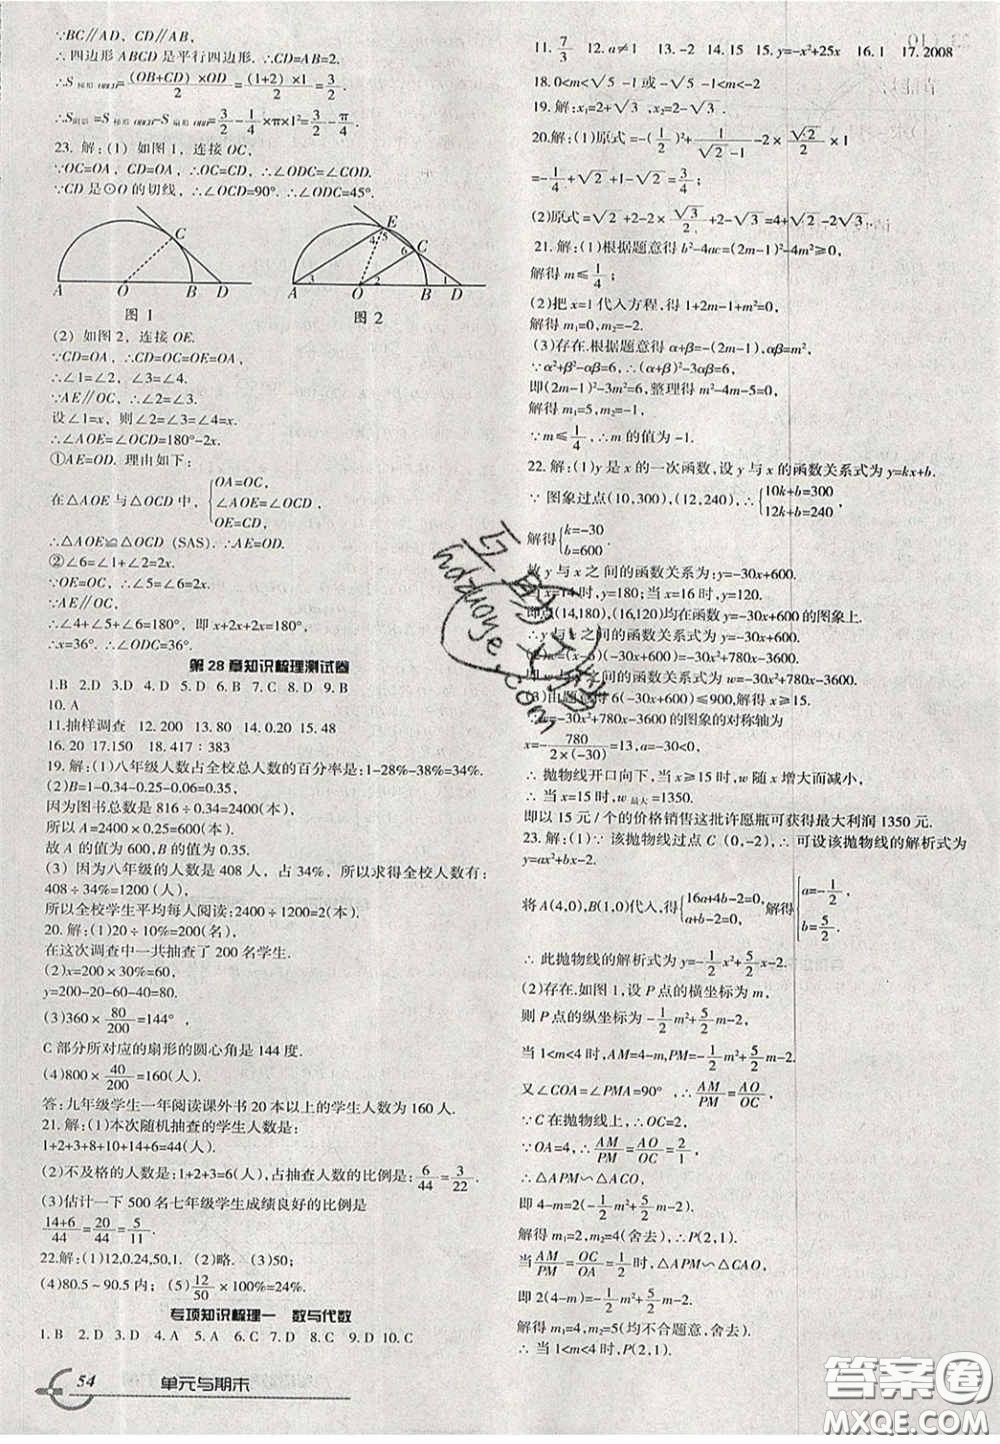 ∵BC∥AD, CD∥AB,
∴四边形 ABCD 是平行四边形. ∴CD=AB=2.
∴S梯形OBCD=(OB+CD)×OD/2=(1+2)×1/2=3/2.
∴S阴影=S梯形OBCD-S扇形OBD=3/2-1/4×π×1²=3/2-π/4.
23. 解: (1) 如图 1, 连接 OC,
∵OC=OA, CD=OA, ∴OC=CD, ∴∠ODC=∠COD.
∵CD 是⊙O 的切线, ∴∠OCD=90°. ∴∠ODC=45°.
C
A O B D
图 1
E
4 5
6 C
3 2 1
A O B D
图 2
(2) 如图 2, 连接 OE.
∵CD=OA, ∴CD=OC=OE=OA,
∴∠1=∠2, ∠3=∠4.
∵AE∥OC, ∴∠2=∠3.
设∠1=x, 则∠2=∠3=∠4=x.
∴∠AOE=∠OCD=180°-2x.
①AE=OD. 理由如下:
在△AOE 与△OCD 中, {OA=OC, ∠AOE=∠OCD, OE=CD,
∴△AOE≌△OCD (SAS). ∴AE=OD.
②∠6=∠1+∠2=2x.
∵OE=OC, ∴∠5=∠6=2x.
∵AE∥OC,
∴∠4+∠5+∠6=180°, 即 x+2x+2x=180°,
∴x=36°. ∴∠ODC=36°.
第 28 章知识梳理测试卷
1.B 2.D 3.D 4.D 5.D 6.B 7.C 8.D 9.B
10. A
11.抽样调查 12.200 13.80 14.0.20 15.48
16.20 17.150 18.417∶383
19.解:(1)八年级人数占全校总人数的百分率是:1-28%-38%=34%.
(2)B=1-0.34-0.25-0.06=0.35,
因为图书总数是 816÷0.34=2400(本),
所以 A=2400×0.25=600(本).
故 A 的值为 600,B 的值为 0.35.
(3) 因为八年级的人数是 408 人, 占 34%, 所以求得全校人数有:
408÷34%=1200(人),
所以全校学生平均每人阅读:2400÷1200=2(本).
20. 解:(1)20÷10%=200(名),
在这次调查中一共抽查了 200 名学生.
(2)x=200×30%=60,
y=200-20-60-40=80.
(3)360×80/200=144°,
C 部分所对应的扇形的圆心角是 144 度.
(4)800×40/200=160(人).
答:九年级学生一年阅读课外书 20 本以上的学生人数为 160 人.
21.解:(1)本次随机抽查的学生人数是:
1+2+3+8+10+14+6=44(人).
(2)不及格的人数是:1+2+3=6(人),占抽查人数的比例是:6/44=3/22.
(3)估计一下 500 名七年级学生成绩良好的比例是
14+6/44=20/44=5/11.
22.解:(1)12,0.24,50,1. (2)略. (3)50;
(4)80.5~90.5 内; (5)12/50×100%=24%.
专项知识梳理一 数与代数
1.B 2.D 3.D 4.A 5.A 6.C 7.D 8.C 9.D 10.C
54 单元与期末
11. 7/3 12. a≠1 13. -2 14. 15 15. y=-x²+25x 16. 1 17. 2008
18.0<m<√5-1 或 -√5-1<m<-2
19.解:x₁=2+√3, x₂=2-√3.
20.解:(1)原式=-(1/2)²+1/(√2-1)-2×√2/2×1
=-1/4+√2+1+√2=3/4;
(2)原式=√2+2-2×√3/2+2-√3=4+√2-2√3.
21.解:(1)根据题意得 b²-4ac=(2m-1)²-4m²≥0,
解得 m≤1/4;
(2)把 x=1 代入方程,得 1+2m-1+m²=0,
解得 m₁=0,m₂=-2.
(3)存在.根据题意得 α+β=-(2m-1),αβ=m²,
∵α²+β²-αβ=6,∴(α+β)²-3αβ=6,
即(2m-1)²-3m²=6,整理得 m²-4m-5=0,
解得 m₁=5,m₂=-1,
∵m≤1/4,∴m 的值为 -1.
22.解:(1)y 是 x 的一次函数,设 y 与 x 的函数关系式为 y=kx+b.
∵ 图象过点(10,300),(12,240),∴{10k+b=300 12k+b=240
解得{k=-30 b=600.
故 y 与 x 之间的函数关系为:y=-30x+600.
当 x=14 时,y=180;当 x=16 时,y=120.
即点(14,180),(16,120)均在函数 y=-30x+600 的图象上.
∴y 与 x 之间的函数关系式为 y=-30x+600.
与 x 之间的函数关系式为 w=-30x²+780x-3600.
(3)由题意得 6(-30x+600)≤900,解得 x≥15.
w=-30x²+780x-3600 的图象的对称轴为
x=-780/2×(-30)=13,a=-30<0,
∴ 抛物线开口向下,当 x≥15 时,w 随 x 增大而减小,
∴ 当 x=15 时,w最大=1350.
即以 15 元/个的价格销售这批许愿瓶可获得最大利润 1350 元.
23.解:(1)∵ 该抛物线过点 C(0,-2),∴ 可设该抛物线的解析式为
y=ax²+bx-2.
将 A(4,0),B(1,0)代入,得{16a+4b-2=0, a+b-2=0, 解得{a=-1/2, b=5/2.
∴ 此抛物线的解析式为 y=-1/2x²+5/2x-2.
(2)存在.如图 1,设 P 点的横坐标为 m,
则 P 点的纵坐标为-1/2m²+5/2m-2,
当 1<m<4 时,AM=4-m,PM=-1/2m²+5/2m-2.
又∠COA=∠PMA=90°,∴AM/PM=AO/OC,
∵C 在抛物线上,∴OC=2,
∵OA=4,∴AM/PM=AO/OC=2/1,
∴△APM∽△ACO,
即 4-m=2(-1/2m²+5/2m-2).
解得 m₁=2,m₂=4(舍去),∴P(2,1).
当AM/PM=OC/OA=1/2时,△APM∽△CAO,
即 2(4-m)=-1/2m²+5/2m-2.
解得 m₁=4,m₂=5(均不合题意,舍去).
∴ 当 1<m<4 时,P(2,1).
答案卷
MXQE.COM